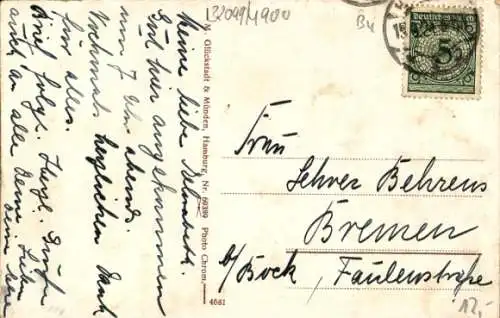 132099/1900
B4
Deutsches Reich
5
Meine liebe
Gut hier angekommen
um 7 Uhr abend.
Nochmals herzlichen Dank
für alles.
Brief folgt. Herzl. Grüße
auch an alle Deine Lieben
Deine
W. Glückstadt & Münden, Hamburg, Nr. 69399 Photo Chrom.
4681
Frau
Lehrer Behrens
Bremen
b/Bock, Faulenstraße
12,-